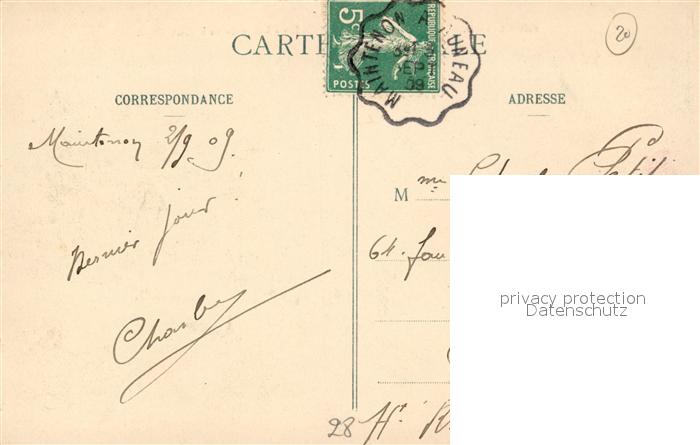 CARTE
5c
RÉPUBLIQUE FRANÇAISE
POSTES
MAINTENON A AUNEAU
SEPT
09
20
CORRESPONDANCE
ADRESSE
Maintenon 2/9 09.
Dernier jour!
Charley
Mme Petit
64. Fau
28
privacy protection
Datenschutz